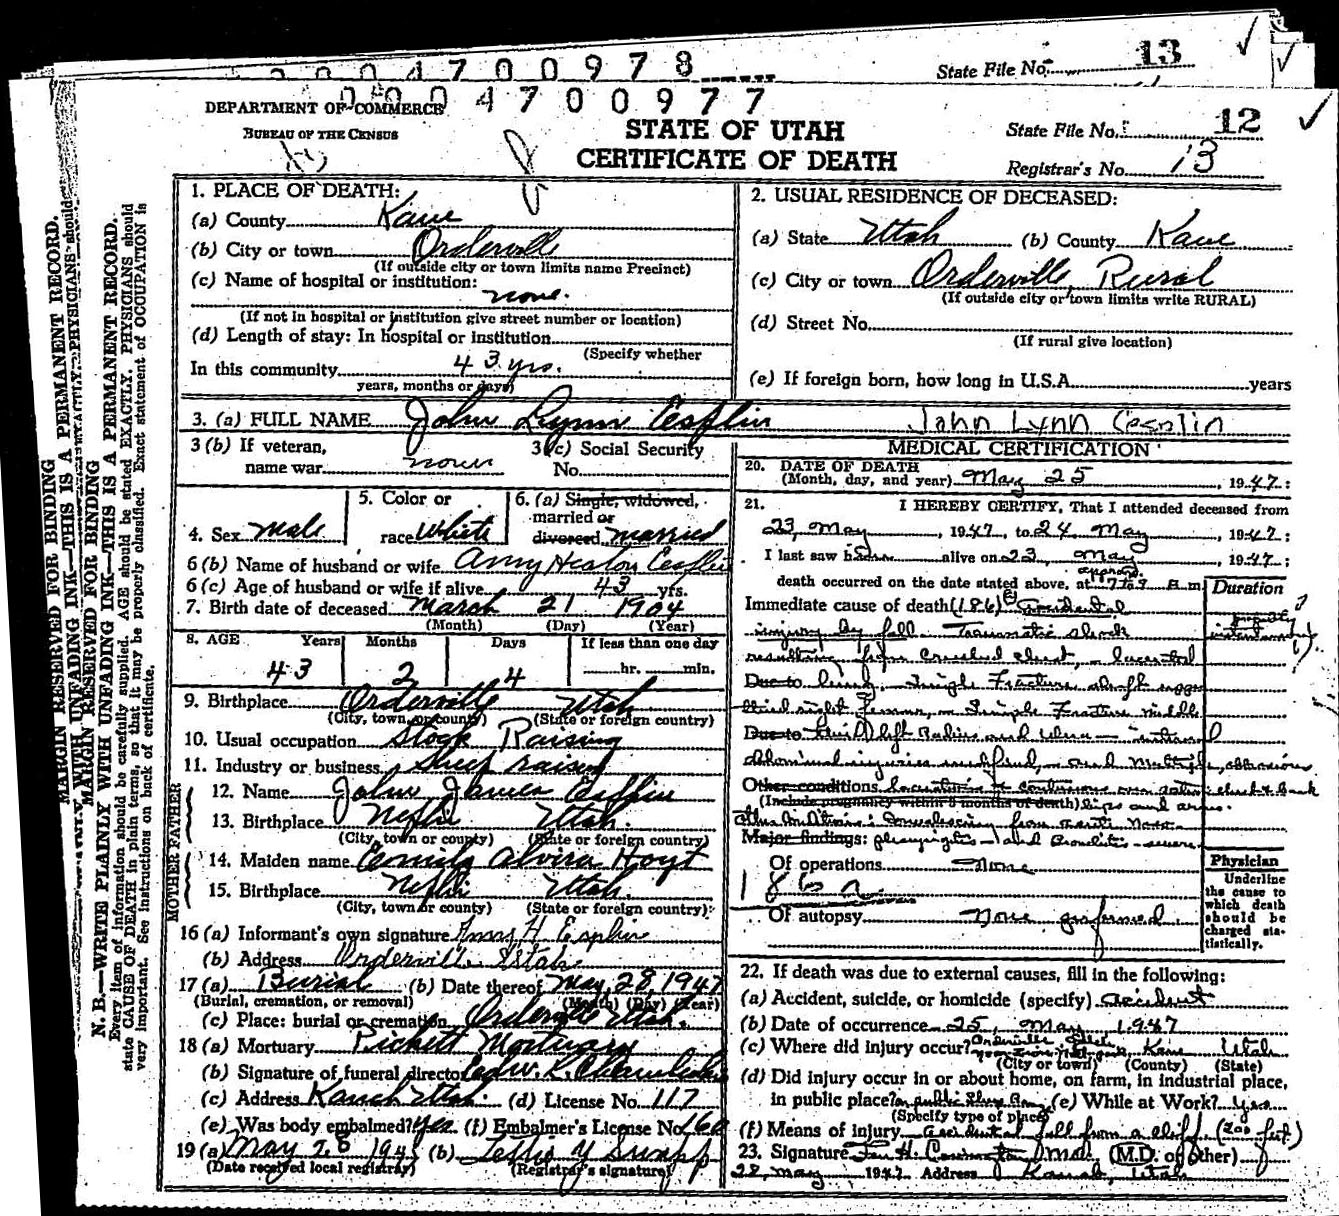 2004700978
State File No. 13
0004700977
DEPARTMENT OF COMMERCE
BUREAU OF THE CENSUS
STATE OF UTAH
CERTIFICATE OF DEATH
State File No. 12
Registrar's No. 13
MARGIN RESERVED FOR BINDING
N. B.—WRITE PLAINLY WITH UNFADING INK—THIS IS A PERMANENT RECORD.
Every item of information should be carefully supplied. AGE should be stated EXACTLY. PHYSICIANS should
state CAUSE OF DEATH in plain terms, so that it may be properly classified. Exact statement of OCCUPATION is
very important. See instructions on back of certificate.
1. PLACE OF DEATH:
(a) County Kane
(b) City or town Orderville
(If outside city or town limits name Precinct)
(c) Name of hospital or institution:
none.
(If not in hospital or institution give street number or location)
(d) Length of stay: In hospital or institution
(Specify whether
In this community 43 yrs.
years, months or days)
2. USUAL RESIDENCE OF DECEASED:
(a) State Utah (b) County Kane
(c) City or town Orderville, Rural
(If outside city or town limits write RURAL)
(d) Street No.
(If rural give location)
(e) If foreign born, how long in U.S.A. years
3. (a) FULL NAME John Lynn Esplin John Lynn Esplin
3 (b) If veteran,
name war none
3 (c) Social Security
No.
4. Sex Male
5. Color or
race White
6. (a) Single, widowed,
married or
divorced married
6 (b) Name of husband or wife Amy Heaton Esplin
6 (c) Age of husband or wife if alive 43 yrs.
7. Birth date of deceased March 21 1904
(Month) (Day) (Year)
8. AGE Years Months Days If less than one day
43 2 4 hr. min.
9. Birthplace Orderville Utah
(City, town or county) (State or foreign country)
10. Usual occupation Stock Raising
11. Industry or business Sheep raising
FATHER
12. Name John James Esplin
13. Birthplace Nephi Utah.
(City, town or county) (State or foreign country)
MOTHER
14. Maiden name Alvira Hoyt
15. Birthplace Nephi Utah.
(City, town or county) (State or foreign country)
16 (a) Informant's own signature Amy H. Esplin
(b) Address Orderville Utah
17 (a) Burial (b) Date thereof May 28, 1947
(Burial, cremation, or removal) (Month) (Day) (Year)
(c) Place: burial or cremation Orderville Utah.
18 (a) Mortuary Mortuary
(b) Signature of funeral director
(c) Address Kanab Utah. (d) License No. 117
(e) Was body embalmed? Yes (f) Embalmer's License No. 160
19 (a) May 28 194 (b)
(Date received local registrar) (Registrar's signature)
MEDICAL CERTIFICATION
20. DATE OF DEATH
(Month, day, and year) May 25, 1947:
21. I HEREBY CERTIFY, That I attended deceased from
23, May, 1947 to 24 May, 1947:
I last saw him alive on 23, May 1947:
approx.
death occurred on the date stated above, at 7 to 9 a.m.
Duration
Immediate cause of death (186) Accidental
injury by fall. Traumatic shock
resulting from crushed chest, lacerated
Due to lung. Simple Fracture shaft upper
third right femur, Simple Fracture middle
Due to third left Radius and Ulna — internal
abdominal injuries undefined, and multiple abrasions
Other conditions lacerations & contusions over chest & back
(Include pregnancy within 3 months of death) lips and arms.
other conditions: Convalescing from acute
Major findings: pharyngitis and Bronchitis - severe
Of operations None
186 a
Of autopsy None performed
Physician
Underline
the cause to
which death
should be
charged sta-
tistically.
22. If death was due to external causes, fill in the following:
(a) Accident, suicide, or homicide (specify) accident
(b) Date of occurrence 25, May 1947
(c) Where did injury occur? Orderville Utah Kane Utah
(City or town) (County) (State)
(d) Did injury occur in or about home, on farm, in industrial place,
in public place? (e) While at Work? yes
(Specify type of place)
(f) Means of injury accidental fall from a cliff (200 feet)
23. Signature M.D. (M.D. or other)
28, May 1947 Address Kanab, Utah